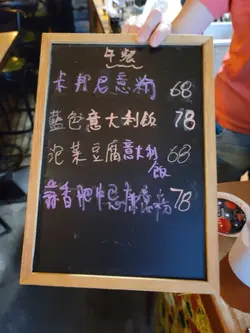 午餐
卡邦尼意粉 68
藍色意大利飯 78
泡菜豆腐意大利飯 68
蒜香肥牛忌廉意粉 78